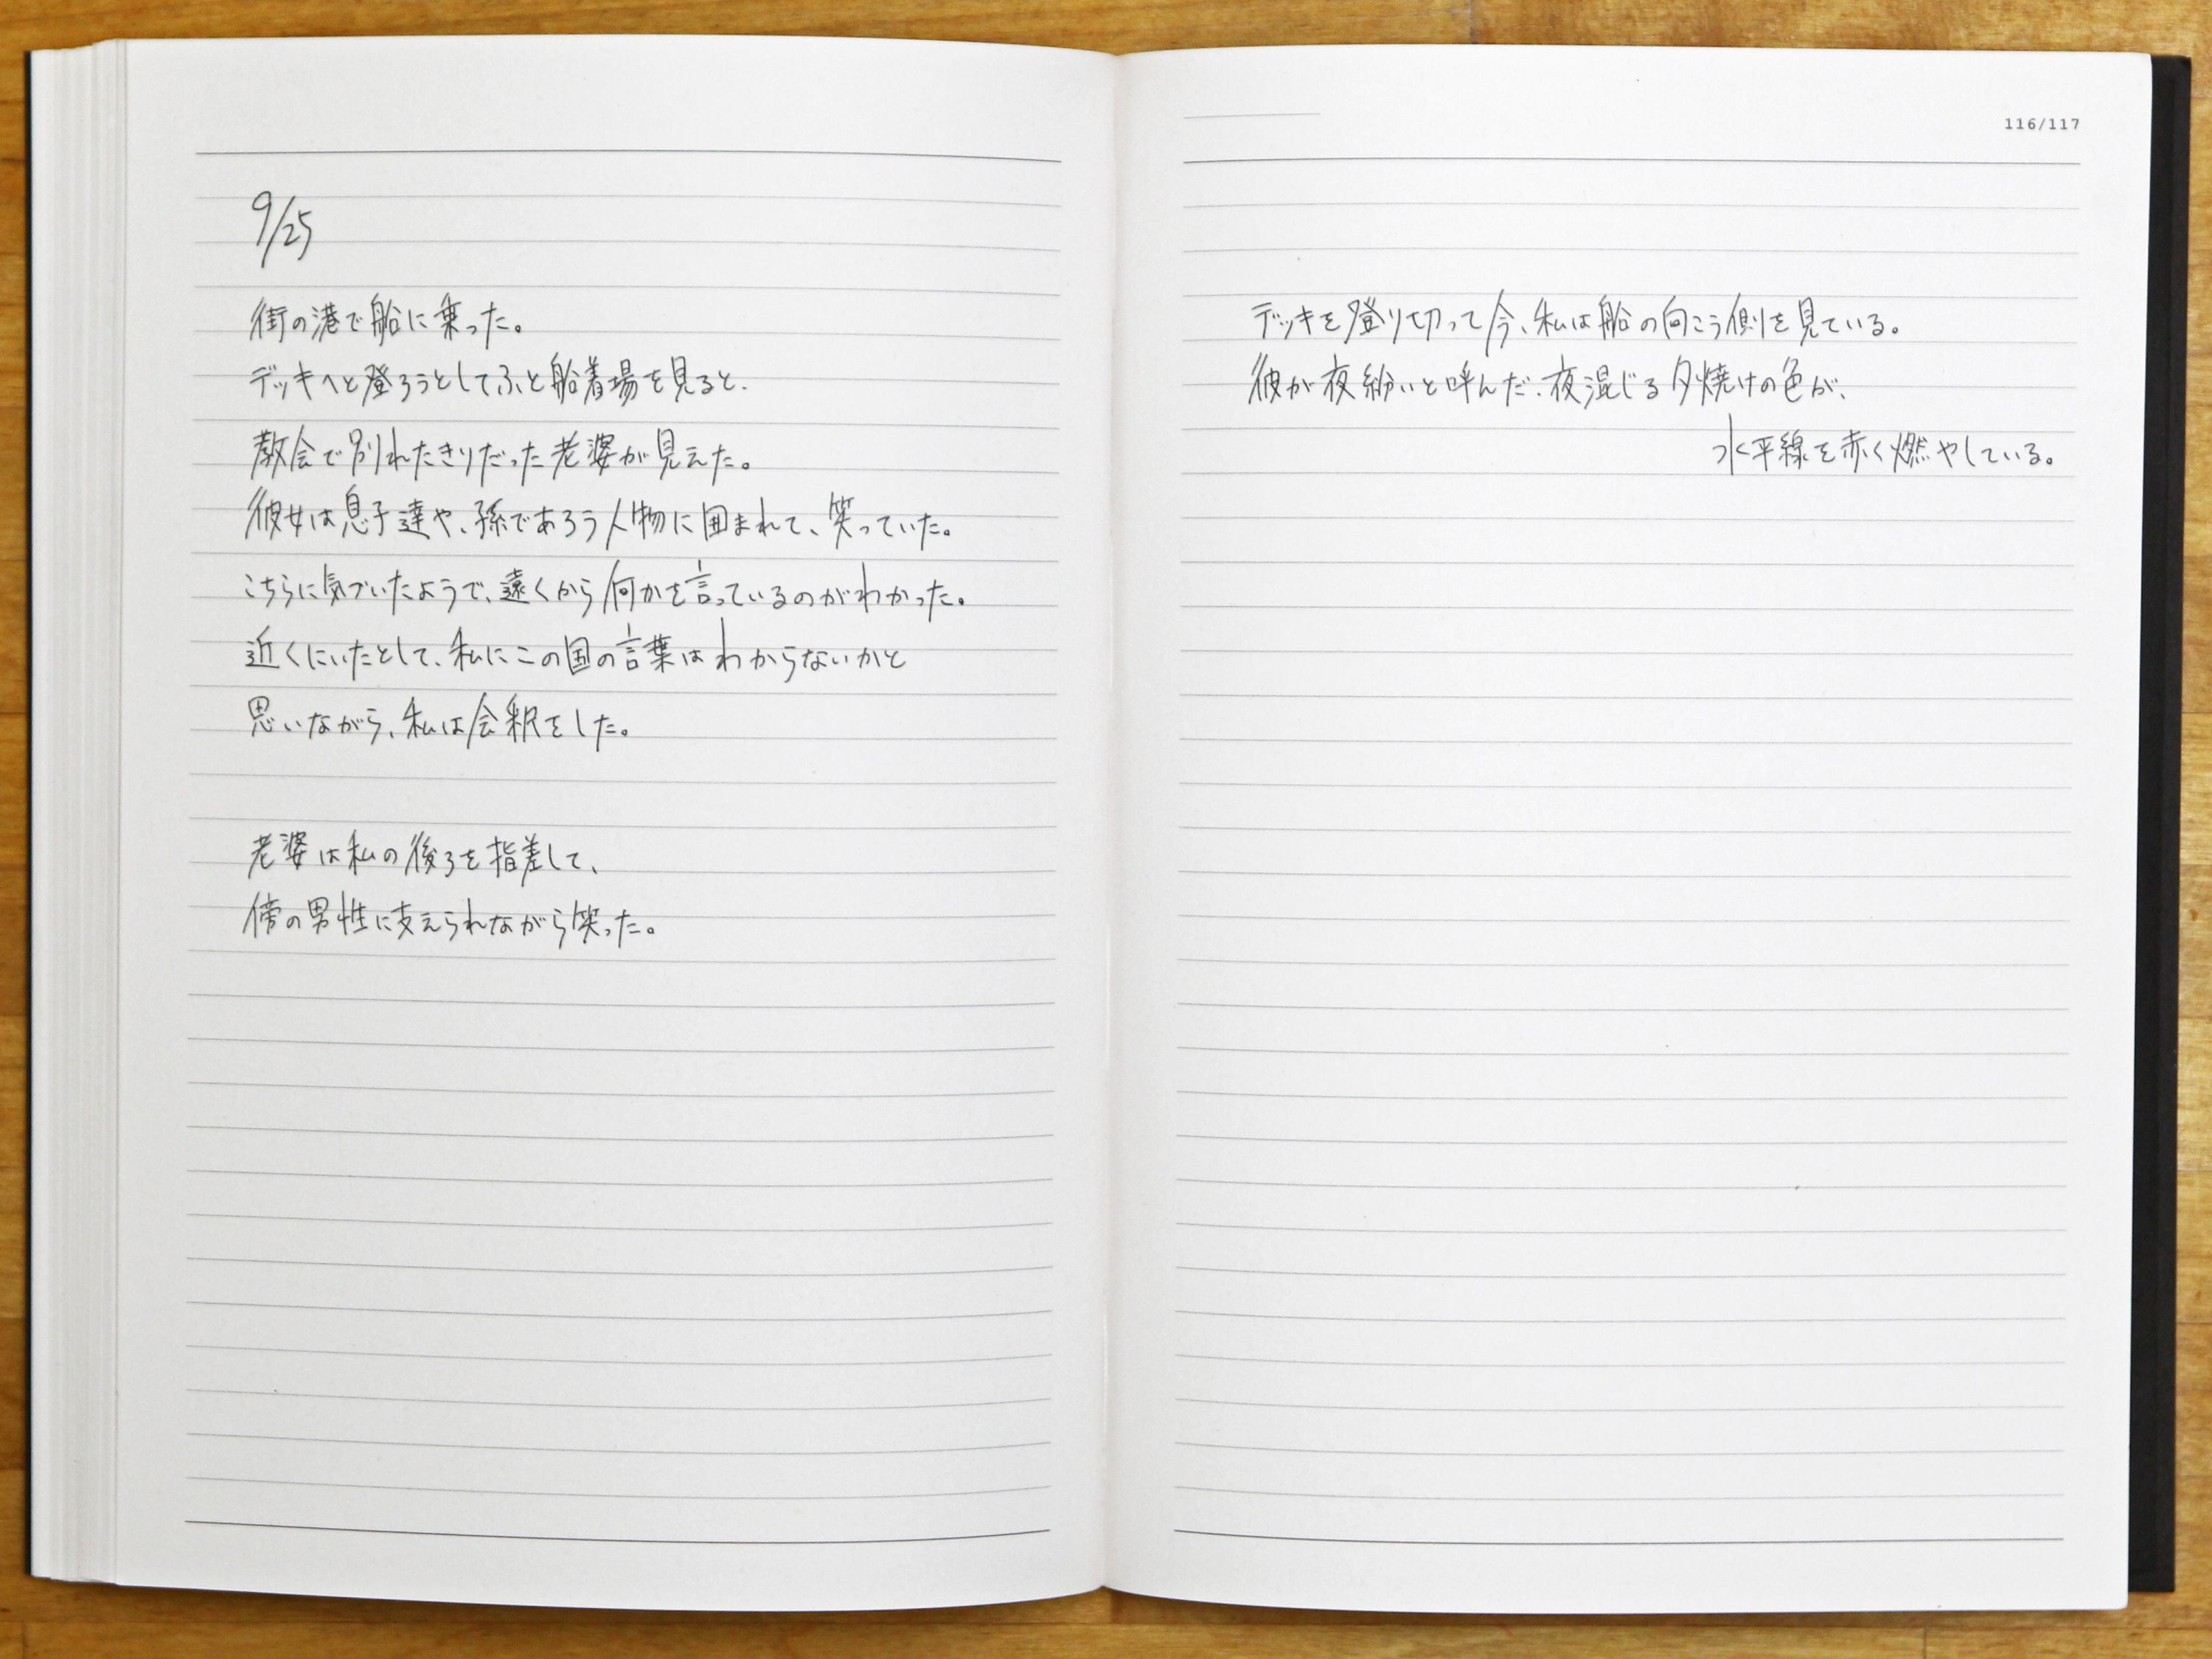 9/25
街の港で船に乗った。
デッキへと登ろうとしてふと船着場を見ると、
教会で別れたきりだった老婆が見えた。
彼女は息子達や、孫であろう人物に囲まれて、笑っていた。
こちらに気づいたようで、遠くから何かを言っているのがわかった。
近くにいたとして、私にこの国の言葉はわからないかと
思いながら、私は会釈をした。
老婆は私の後ろを指差して、
傍の男性に支えられながら笑った。
116/117
デッキを登り切って今、私は船の向こう側を見ている。
彼が夜紛いと呼んだ、夜混じる夕焼けの色が、
水平線を赤く燃やしている。